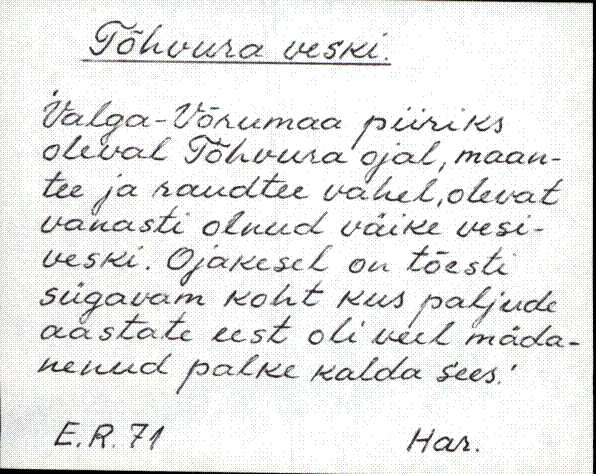 Tõhvura veski.
Valga-Võrumaa piiriks
oleval Tõhvura ojal, maan-
tee ja raudtee vahel, olevat
vanasti olnud väike vesi-
veski. Ojakesel on tõesti
sügavam koht kus paljude
aastate eest oli veel mäda-
nenud palke kalda sees.
E.R. 71
Har.